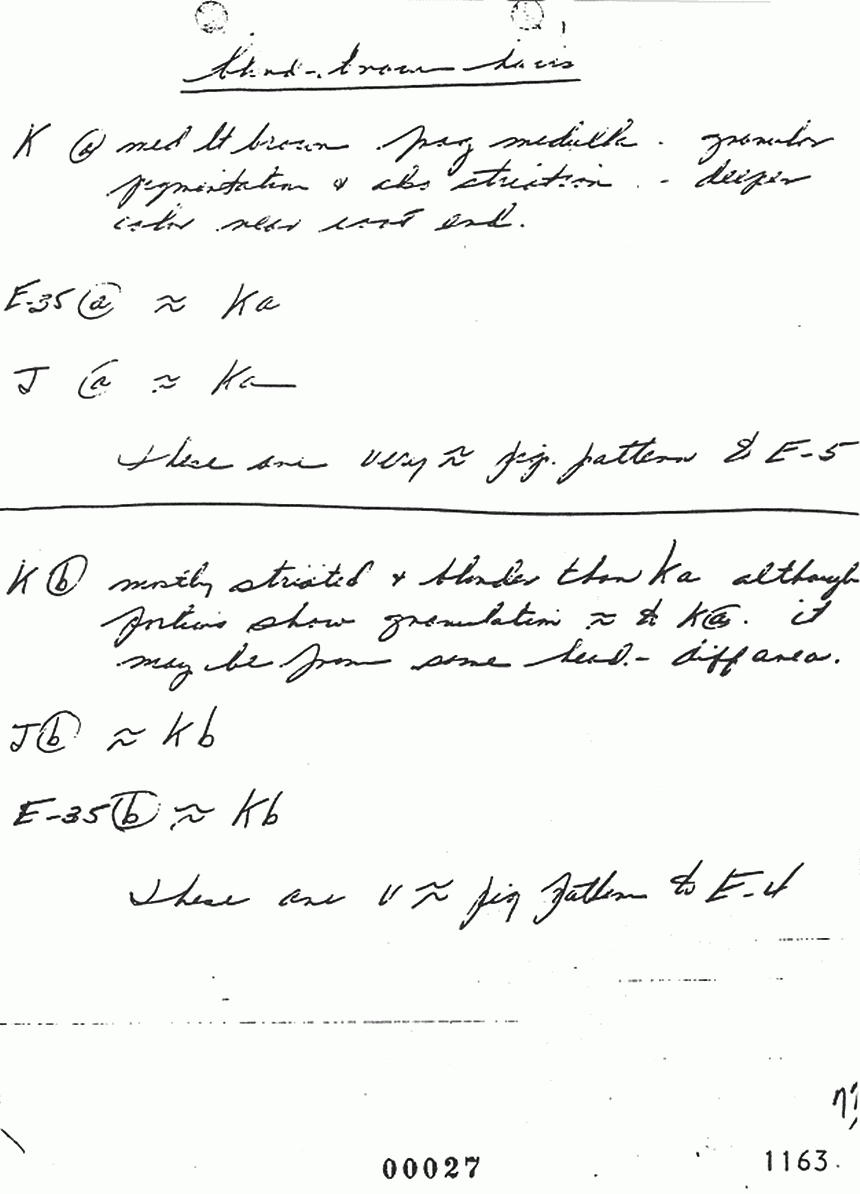 blond-brown hairs
K ⓐ med lt brown frag medulla - granular
pigmentation & also striation - deeper
color near root end.
E-35 ⓐ ≈ Ka
J ⓐ ≈ Ka
These are very ≈ pig. pattern to E-5
K ⓑ mostly striated & blonder than Ka although
portions show granulation ≈ to Kⓐ. it
may be from same head - diff area.
J ⓑ ≈ Kb
E-35 ⓑ ≈ Kb
These are v ≈ pig pattern to E-4
00027
1163